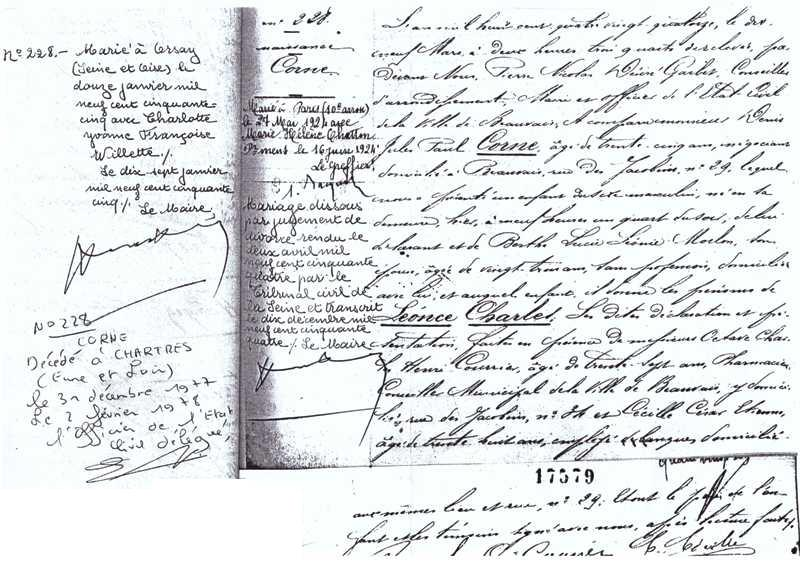 N° 228. - Marié à Orsay
(Seine et Oise) le
douze janvier mil
neuf cent cinquante-
cinq avec Charlotte
Yvonne Françoise
Willette ./.
Le dix sept janvier
mil neuf cent cinquante
cinq ./.
Le Maire,
N° 228
CORNE
Décédé à CHARTRES
(Eure et Loir)
le 31 décembre 1977
Le 2 février 1978
l'Officier de l'Etat
Civil délégué,
n° 228.
naissance
Corne
Marié à Paris (10e arron)
le 27 Mai 1924 avec
Marie Hélène
le 16 juin 1924
Le greffier
Mariage dissous
par jugement de
divorce rendu le
deux avril mil
neuf cent cinquante
quatre par le
Tribunal civil de
la Seine et transcrit
le dix décembre mil
neuf cent cinquante
quatre ./. Le Maire
L'an mil huit cent quatre vingt quatorze, le dix
neuf Mars, à deux heures trois quarts de relevée, par
devant Nous, Pierre Nicolas Désiré Conseiller
d'arrondissement, Maire et officier de l'Etat Civil
de la Ville de Beauvais, A comparu monsieur Denis
Jules Paul CORNE, âgé de trente cinq ans, négociant
domicilié à Beauvais, rue des Jacobins, n° 29, lequel
nous a présenté un enfant du sexe masculin, né en sa
demeure, hier, à neuf heures un quart du soir, de lui
déclarant et de Berthe Lucie Léonie son
épouse, âgée de vingt trois ans, sans profession, domiciliée
avec lui, et auquel enfant, il donne les prénoms de
Léonce Charles. Les dites déclaration et pré-
sentation, faites en présence de messieurs Octave Char-
les Henri Courrier, âgé de trente sept ans, Pharmacien,
Conseiller Municipal de la Ville de Beauvais, y domici-
lié, rue des Jacobins, n° et César Etienne
âgé de trente huit ans, employé domicilié
17579
aux mêmes lieu et rue, n° 29. Et ont le père de l'en-
fant et les témoins signé avec nous, après lecture faite ./.